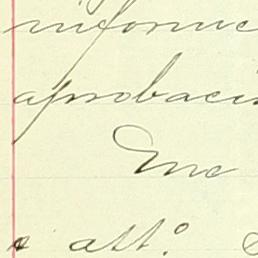 informe
aprobaci
Me
s att.º S